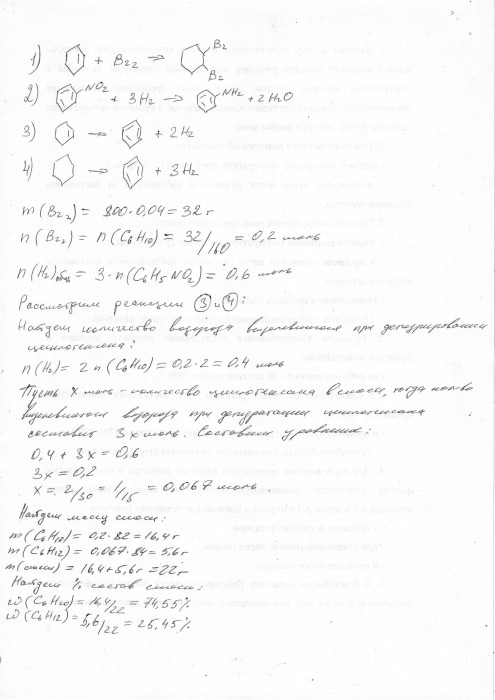 1) + Br2 → Br Br
2) NO2 + 3H2 → NH2 + 2H2O
3) → + 2H2
4) → + 3H2
m(Br2) = 800·0,04 = 32 г
n(Br2) = n(C6H10) = 32/160 = 0,2 моль
n(H2)общ = 3·n(C6H5NO2) = 0,6 моль
Рассмотрим реакции 3 и 4:
Найдем количество водорода выделевшегося при дегидрировании
циклогексена:
n(H2) = 2n(C6H10) = 0,2·2 = 0,4 моль
Пусть x моль - количество циклогексана в смеси, тогда кол-во
выделевшегося водорода при дегидратации циклогексана
составит 3x моль. Составим уравнение:
0,4 + 3x = 0,6
3x = 0,2
x = 2/30 = 1/15 = 0,067 моль.
Найдем массу смеси:
m(C6H10) = 0,2·82 = 16,4 г
m(C6H12) = 0,067·84 = 5,6 г
m(смеси) = 16,4 + 5,6 г = 22 г
Найдем % состав смеси:
ω(C6H10) = 16,4/22 = 74,55%
ω(C6H12) = 5,6/22 = 25,45%